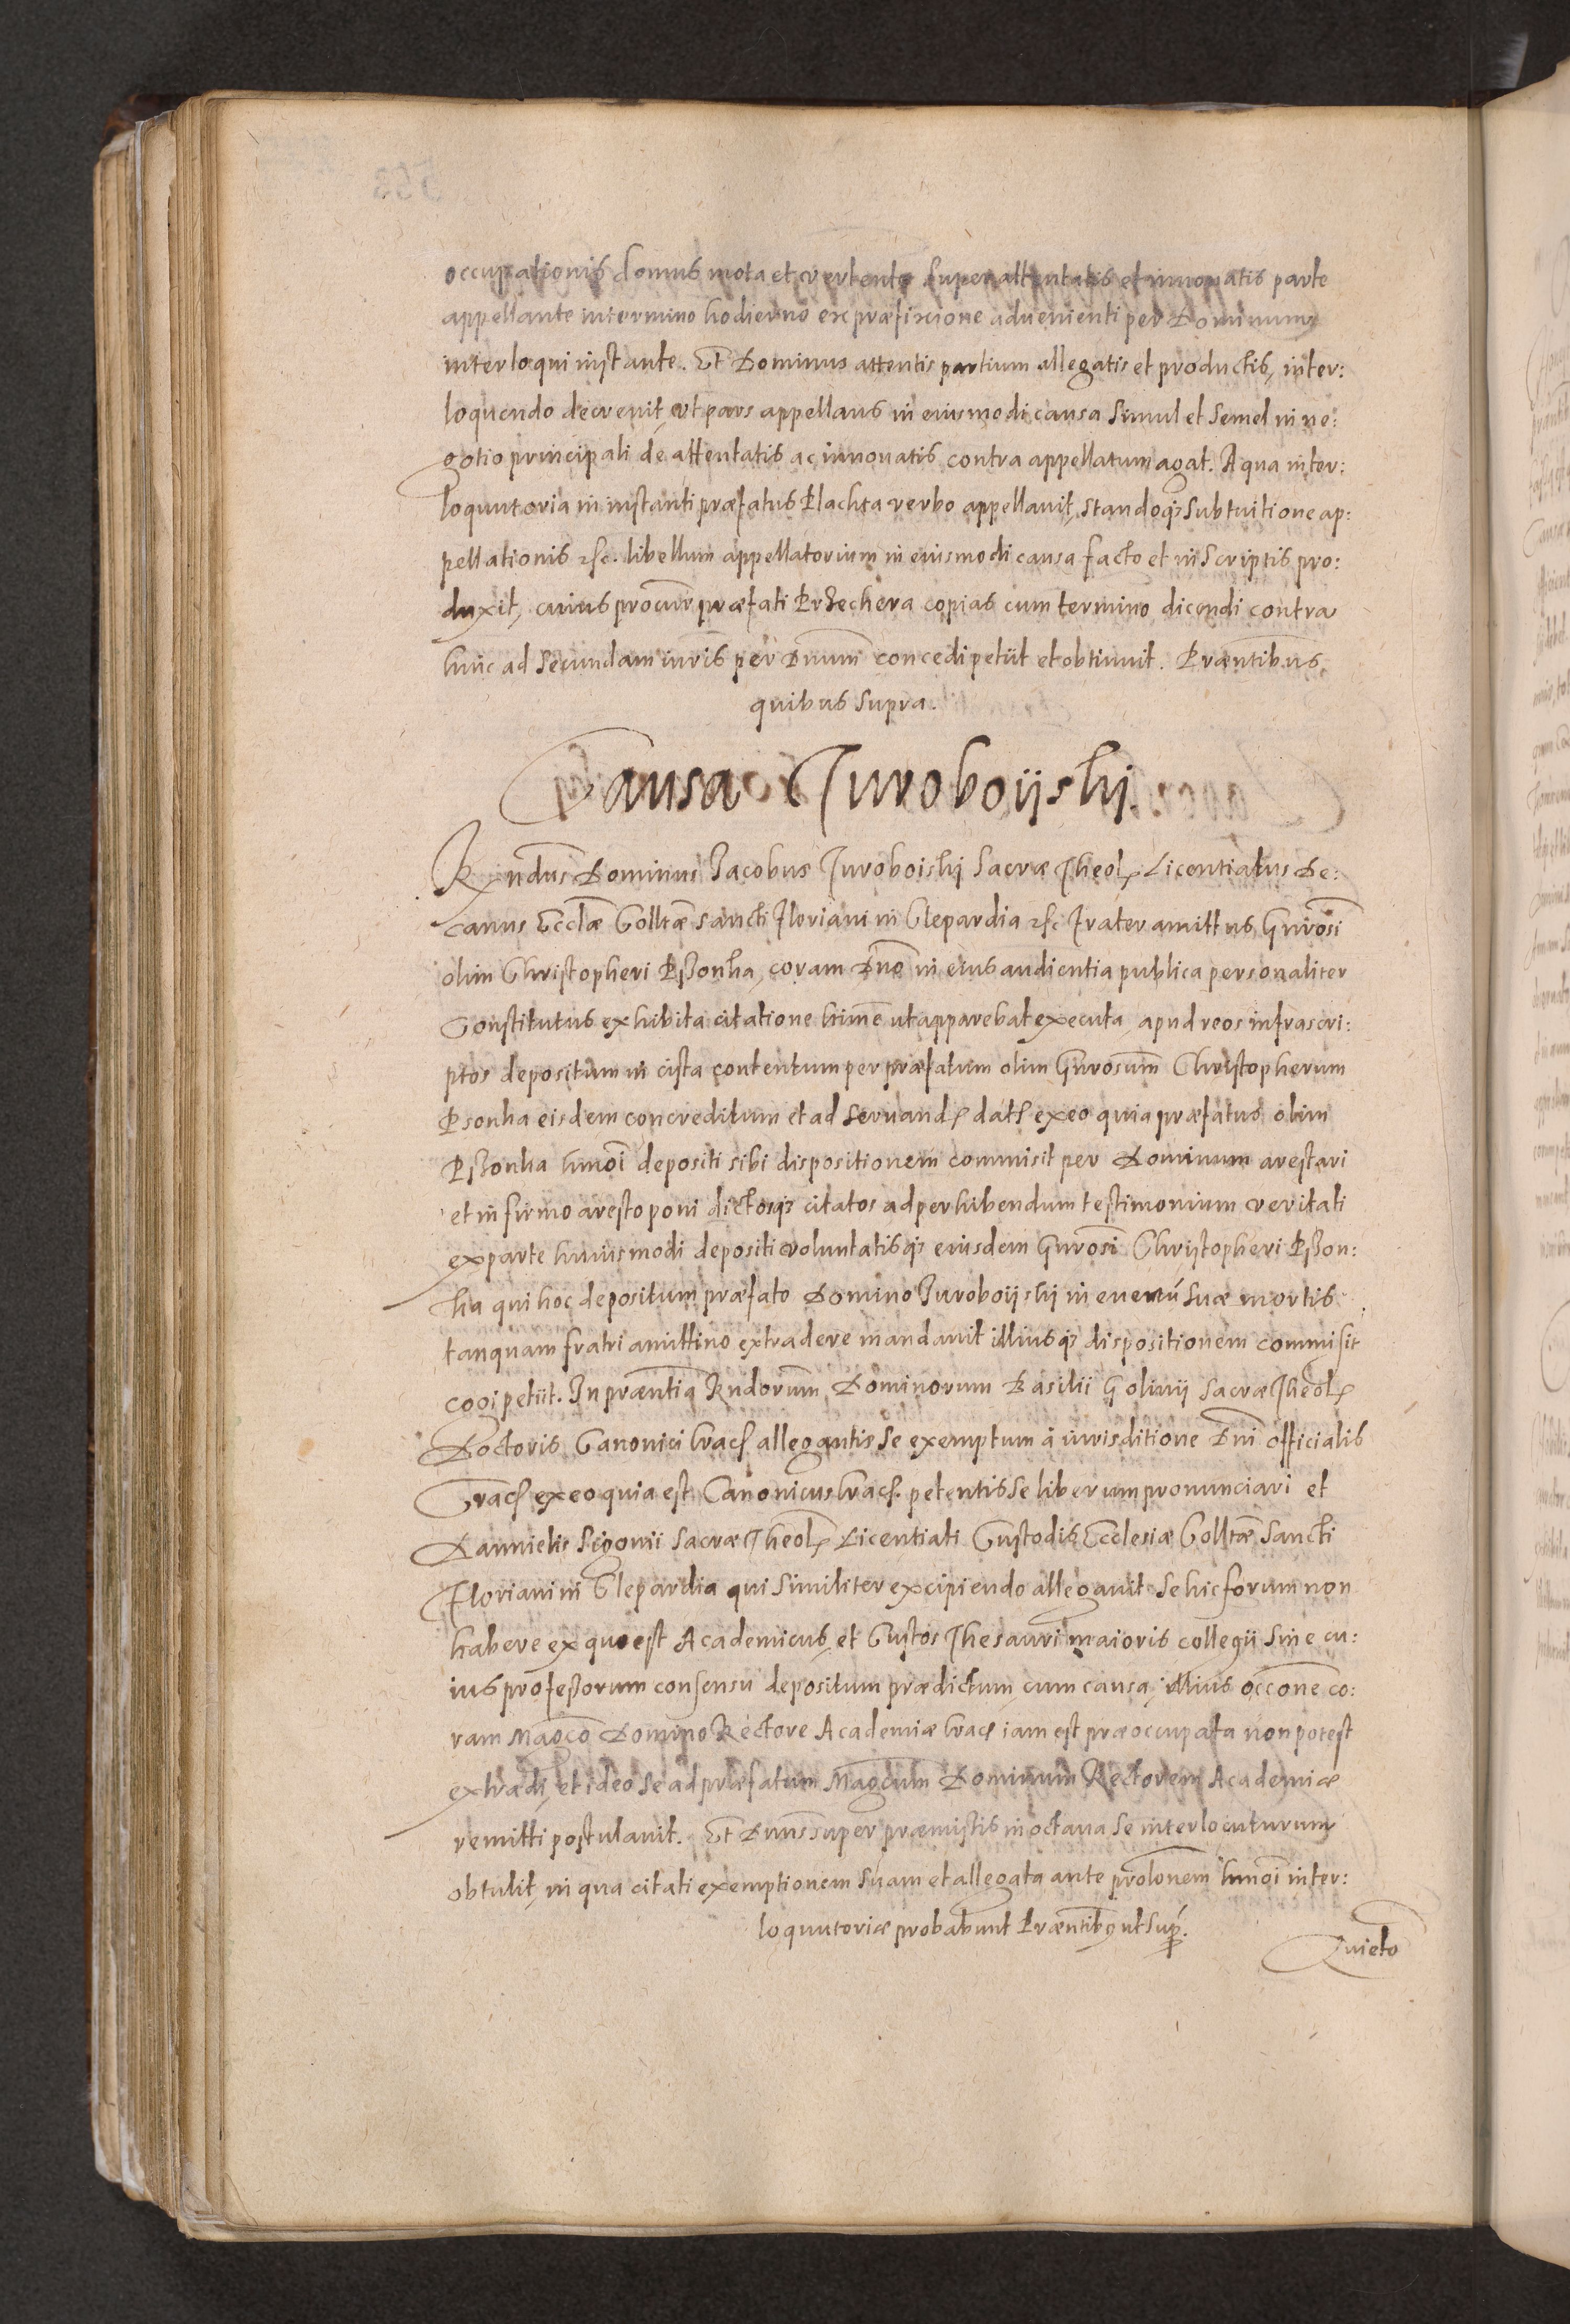 occupationis domus mota et vertente super attentatis et innovatis parte
appellante in termino hodierno ex præfixione advenienti per Dominum
interloqui instante. Et Dominus attentis partium allegatis et productis, inter:
loquendo decrevit, ut pars appellans in eiusmodi causa simul et semel in ne:
gotio principali de attentatis ac innovatis contra appellatum agat. A qua inter:
loquutoria in instanti præfatus Plachta verbo appellavit, standoq₃ sub tuitione ap:
pellationis etc. libellum appellatorium in eiusmodi causa facto et in scriptis pro:
duxit, cuius procur præfati Przechera copias cum termino dicendi contra
hinc ad secundam iuris per Dnum concedi petiit et obtinuit. Præntibus
quibus supra.
Causa Turoboijskj.
Rndus Dominus Jacobus Turoboiskj Sacræ Theol Licentiatus De:
canus Ecclæ Colltæ Sancti Floriani in Clepardia etc frater amittus Gnrosi
olim Christopheri Pszonka, coram Dno in eius audientia publica personaliter
Constitutus exhibita citatione ut apparebat executa, apud reos infrascri:
ptos depositum in cista contentum per præfatum olim Gnrosum Christopherum
Psonka eisdem concreditum et ad servand dat ex eo quia præfatus olim
Pszonka hmoi depositi sibi dispositionem commisit per Dominum arestari
et in firmo aresto poni dictosq₃ citatos ad perhibendum testimonium veritati
ex parte huiusmodi depositi voluntatisq₃ eiusdem Gnrosi Christopheri Pszon:
ka qui hoc depositum præfato Domino Turoboijskj in eventu suæ mortis
tanquam fratri amittino extradere mandavit illiusq₃ dispositionem commisit
cogi petiit. In præntia Rndorum Dominorum Basilii Golinij Sacræ Theol
Doctoris Canonici Crac allegantis se exemptum à iurisditione Dni officialis
Crac ex eo quia est Canonicus Crac. petentis se liberum pronunciari et
Dannielis Sigonii Sacræ Theol Licentiati Custodis Ecclesiæ Colltæ Sancti
Floriani in Clepardia qui similiter excipiendo allegavit se hic forum non
habere ex quo est Academicus, et Custos Thesauri maioris collegii sine cu:
ius professorum consensu depositum prædictum, cum causa, illius occone co:
ram Magco Domino Rectore Academiæ Crac iam est præoccupata non potest
extradi, et ideo se ad præfatum Magcum Dominum Rectorem Academiæ
remitti postulavit. Et Dnus super præmissis in octava se interlocuturum
obtulit, in qua citati exemptionem suam et allegata ante prolonem hmoi inter:
loquutoriæ probabunt Præntib₉ ut sup.
Quieto